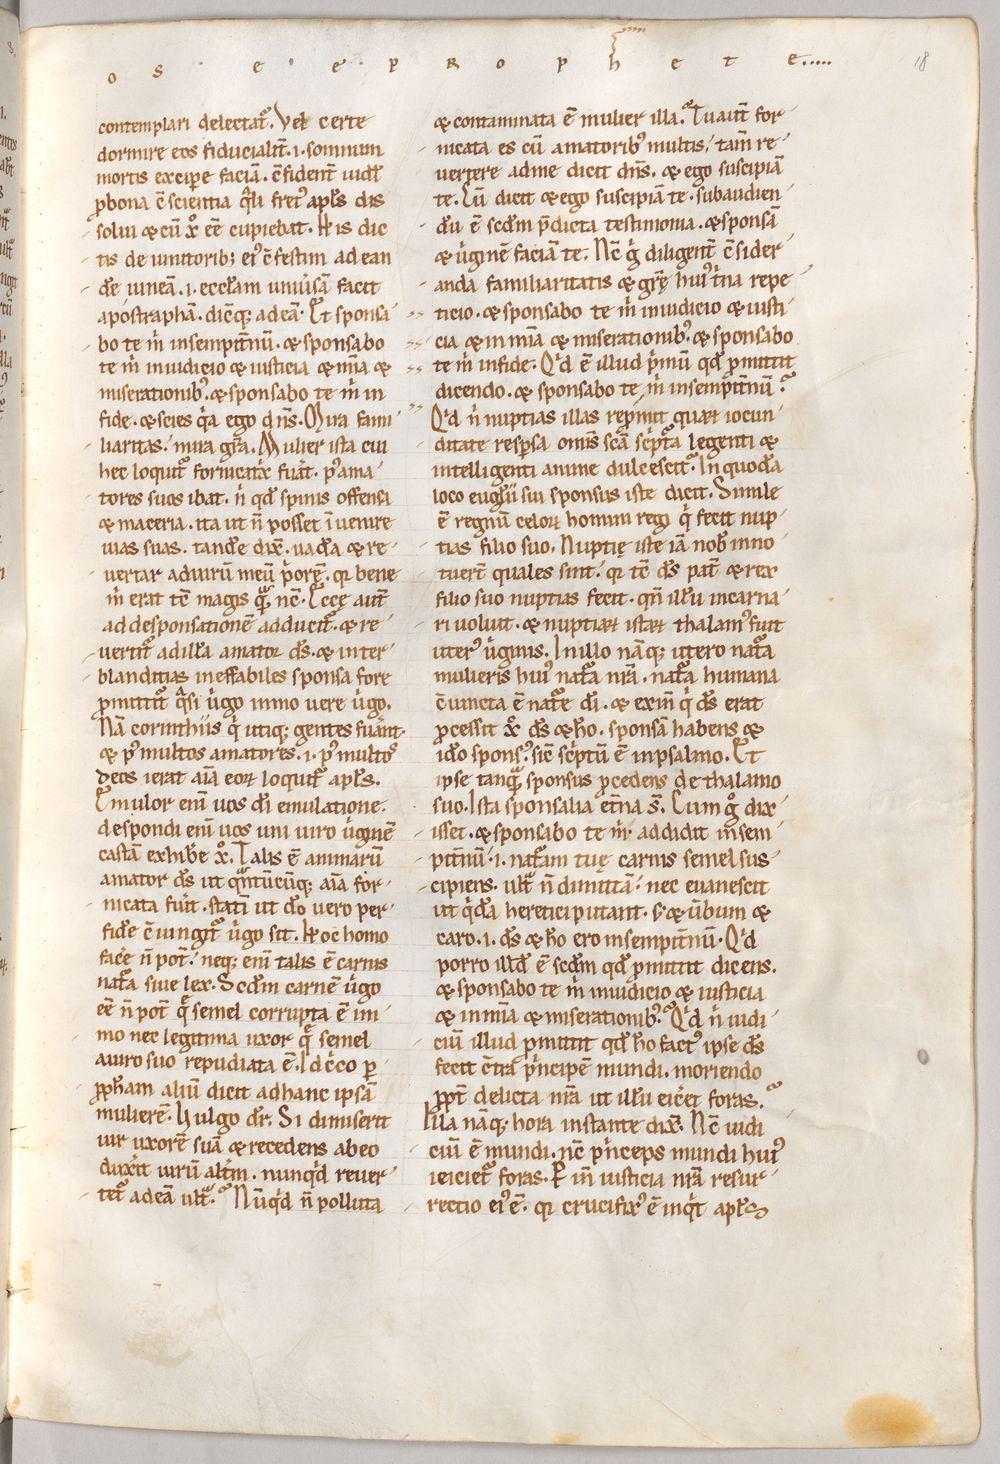 O S E E P R O P H E T E.....
18
contemplari delectat᷑. Vel certe
dormire eos fiducialit̄. i. somnum
mortis excipe faciā. c̄fident̄ uidr̄
ꝓbona c̄scientia q̄li fret᷒ apl̄s dis
solui & cū xo᷒ eē cupiebat. His dic
tis de uinitorib; ei᷒ c̄festim ad ean
dē uineā. i. eccl̄am uniūsā facit
apostraphā. dicēq; ad eā. Et sponsa
bo te m̄ insempit̄nū. & sponsabo
te m̄ iniudicio & iusticia & mīa &
miserationib᷒. & sponsabo te m̄ in
fide. & scies q̄a ego dn̄s. Mira fami
liaritas. mira gr̄a. Mulier ista cui
hec loquit᷑ fornicatrix fuit. p᷒ ama
tores suos ibat. n̄ qd̄ spinis offensa
& maceria. ita ut n̄ posset īuenire
uias suas. tandē dix̄. uadā & re
uertar aduirū meū p̄orē. qr bene
m̄ erat tc̄ magis quā nc̄. Ecce aut̄
ad desponsationē adducit᷑. & re
uertit᷑ adillā amator ds̄. & inter
blanditias ineffabiles sponsa fore
ꝓmittit᷑ q̄si ūgo immo uere ūgo.
Nā corinthiis q̄ utiq; gentes fuānt
& p᷒ multos amatores. i. p᷒ multos
deos ierat aīa eorꝝ loquit᷑ apl̄s.
Emulor eni᷑ uos dī emulatione.
despondi eni᷑ uos uni uiro ūginē
castā exhibē xo᷒. Talis ē animarū
amator ds̄ ut q̄ntūcūq; aīa for
nicata fūit. statī ut do᷒ uero per
fidē c̄iungit᷑ ūgo sit. Hoc homo
facē n̄ pot̄. neq; eni᷑ talis ē carnis
nat̄a siue lex. Scd̄m carnē ūgo
eē n̄ pot̄ q̄ semel corrupta ē im
mo nec legitima uxor q̄ semel
auiro suo repudiata ē. Idc̄co ꝑ
ꝓph̄am aliū dicit adhanc ipsā
mulierē. Uulgo dr̄. Si dimiserit
uir uxorē suā & recedens abeo
duxīt uirū alt̄m. nunqd̄ reuer
tet᷑ ad eā ult᷑. Nūqd̄ n̄ polluta
& contaminata ē mulier illa. Tu aut̄ for
nicata es cū amatorib᷒ multis. tam̄ re
uertere adme dicit dn̄s. & ego suscipiā
te. Cū dicit & ego suscipiā te. subaudien
dū ē scd̄m p̄dicta testimonia. & sponsā
& ūginē faciā te. Nc̄ g̊ diligent̄ c̄sider
anda familiaritatis & grē hui᷒ t̄na repe
ticio. & sponsabo te m̄ iniudicio & iusti
cia & in mīa & miserationib᷒. & sponsabo
te m̄ infide. Qd̄ ē illud p̄mū qd̄ ꝓmittit
dicendo. & sponsabo te m̄ insempit̄nū.
Qd̄ n̄ nuptias illas repmit quarꝝ iocun
ditate respsa omīs scā sc̄pt̄a legenti &
intelligenti anime dulcescit. In quodā
loco eug̅lii sui sponsus iste dicit. Simile
ē regnū celorꝝ homini regi q̄ fecit nup
tias filio suo. Nuptie iste iā nob̄ inno
tuert̄ quales sint. qr tc̄ ds̄ pat̄ & rex
filio suo nuptias fecit. qn̄ illū incarna
ri uoluit. & nuptiarꝝ istarꝝ thalam᷒ fuit
uter᷒ ūginis. In illo nāq; utero nat̄a
mulieris hui᷒ nat̄a nr̄a. nat̄a humana
c̄iuncta ē nat̄e dī. & exin̄ q̄ ds̄ erat
ꝓcessit xo᷒ ds̄ & ho᷒. sponsā habens &
ido᷒ spons᷒. sic̄ sc̄ptū ē inpsalmo. Et
ipse tanquā sponsus ꝓcedens de thalamo
suo. Ista sponsalia et̄na s̄. Cum g̊ dix
isset. & sponsabo te m̄. addidit insem
pit̄nū. i. nat̄am tuę carnis semel sus
cipiens. ult᷑ n̄ dimittā. nec euanescit
ut q̄dā heretici putant. s; & ūbum &
caro. i. ds̄ & ho᷒ ero insempit̄nū. Qd̄
porro illd̄ ē scd̄m qd̄ ꝓmittit dicens.
& sponsabo te m̄ iniudicio & iusticia
& in mīa & miserationib᷒. Qd̄ n̄ iudi
ciū illud ꝓmittit qd̄ ho᷒ fact᷒ ipse ds̄
fecit c̄tra p̄ncipē mundi. moriendo
ꝓpt̄ delicta nr̄a ut illū eic̄et foras.
Illa nāq; hora instante dix̄. Nc̄ iudi
ciū ē mundi. nc̄ p̄nceps mundi hui᷒
ieiciet᷑ foras. Et in iusticia nr̄a resur
rectio ei᷒ ē. qr crucifix᷒ ē inqt̄ apl̄s